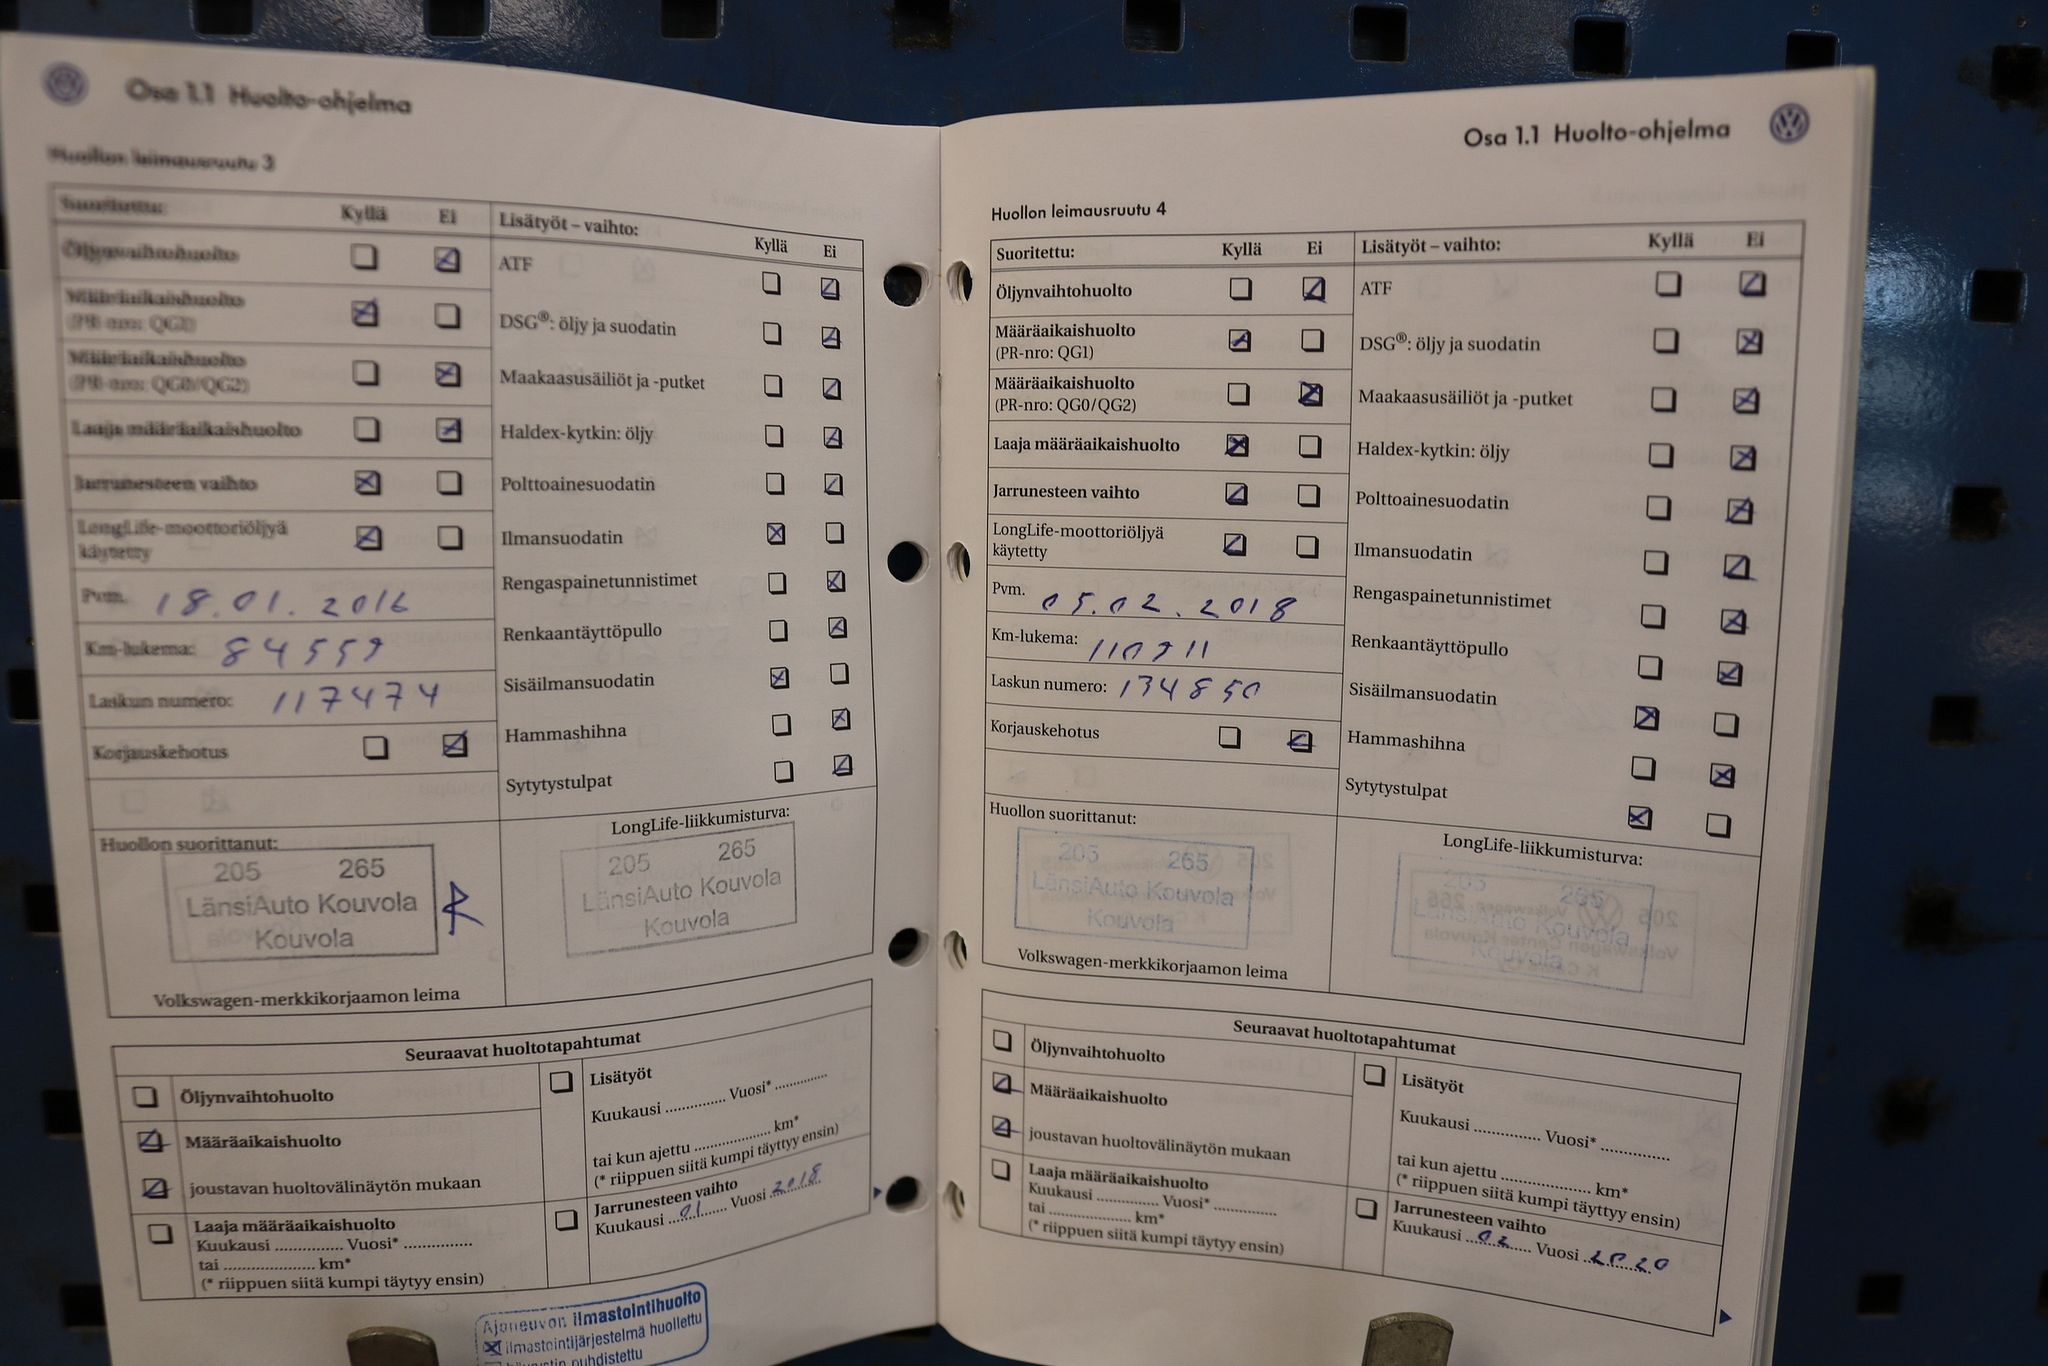 Osa 1.1 Huolto-ohjelma
Huollon leimausruutu 3
Suoritettu: Kyllä Ei
Öljynvaihtohuolto
Määräaikaishuolto
(PR-nro: QG1)
Määräaikaishuolto
(PR-nro: QG0/QG2)
Laaja määräaikaishuolto
Jarrunesteen vaihto
LongLife-moottoriöljyä
käytetty
Pvm. 18.01.2016
Km-lukema: 84559
Laskun numero: 117474
Korjauskehotus
Lisätyöt – vaihto: Kyllä Ei
ATF
DSG®: öljy ja suodatin
Maakaasusäiliöt ja -putket
Haldex-kytkin: öljy
Polttoainesuodatin
Ilmansuodatin
Rengaspainetunnistimet
Renkaantäyttöpullo
Sisäilmansuodatin
Hammashihna
Sytytystulpat
Huollon suorittanut:
205 265
LänsiAuto Kouvola
Kouvola
Volkswagen-merkkikorjaamon leima
LongLife-liikkumisturva:
205 265
LänsiAuto Kouvola
Kouvola
Seuraavat huoltotapahtumat
Öljynvaihtohuolto
Määräaikaishuolto
joustavan huoltovälinäytön mukaan
Laaja määräaikaishuolto
Kuukausi ............... Vuosi* ...............
tai .................... km*
(* riippuen siitä kumpi täytyy ensin)
Lisätyöt
Kuukausi ............. Vuosi* ............
tai kun ajettu ................. km*
(* riippuen siitä kumpi täytyy ensin)
Jarrunesteen vaihto
Kuukausi 01 Vuosi 2018
Ajoneuvon ilmastointihuolto
ilmastointijärjestelmä huollettu
puhdistettu
Osa 1.1 Huolto-ohjelma
Huollon leimausruutu 4
Suoritettu: Kyllä Ei
Öljynvaihtohuolto
Määräaikaishuolto
(PR-nro: QG1)
Määräaikaishuolto
(PR-nro: QG0/QG2)
Laaja määräaikaishuolto
Jarrunesteen vaihto
LongLife-moottoriöljyä
käytetty
Pvm. 05.02.2018
Km-lukema: 110711
Laskun numero: 134850
Korjauskehotus
Lisätyöt – vaihto: Kyllä Ei
ATF
DSG®: öljy ja suodatin
Maakaasusäiliöt ja -putket
Haldex-kytkin: öljy
Polttoainesuodatin
Ilmansuodatin
Rengaspainetunnistimet
Renkaantäyttöpullo
Sisäilmansuodatin
Hammashihna
Sytytystulpat
Huollon suorittanut:
205 265
LänsiAuto Kouvola
Kouvola
Volkswagen-merkkikorjaamon leima
LongLife-liikkumisturva:
205 265
LänsiAuto Kouvola
Kouvola
Seuraavat huoltotapahtumat
Öljynvaihtohuolto
Määräaikaishuolto
joustavan huoltovälinäytön mukaan
Laaja määräaikaishuolto
Kuukausi ............. Vuosi* ..............
tai .................... km*
(* riippuen siitä kumpi täytyy ensin)
Lisätyöt
Kuukausi ............... Vuosi* ...............
tai kun ajettu .................... km*
(* riippuen siitä kumpi täytyy ensin)
Jarrunesteen vaihto
Kuukausi 02 Vuosi 2020